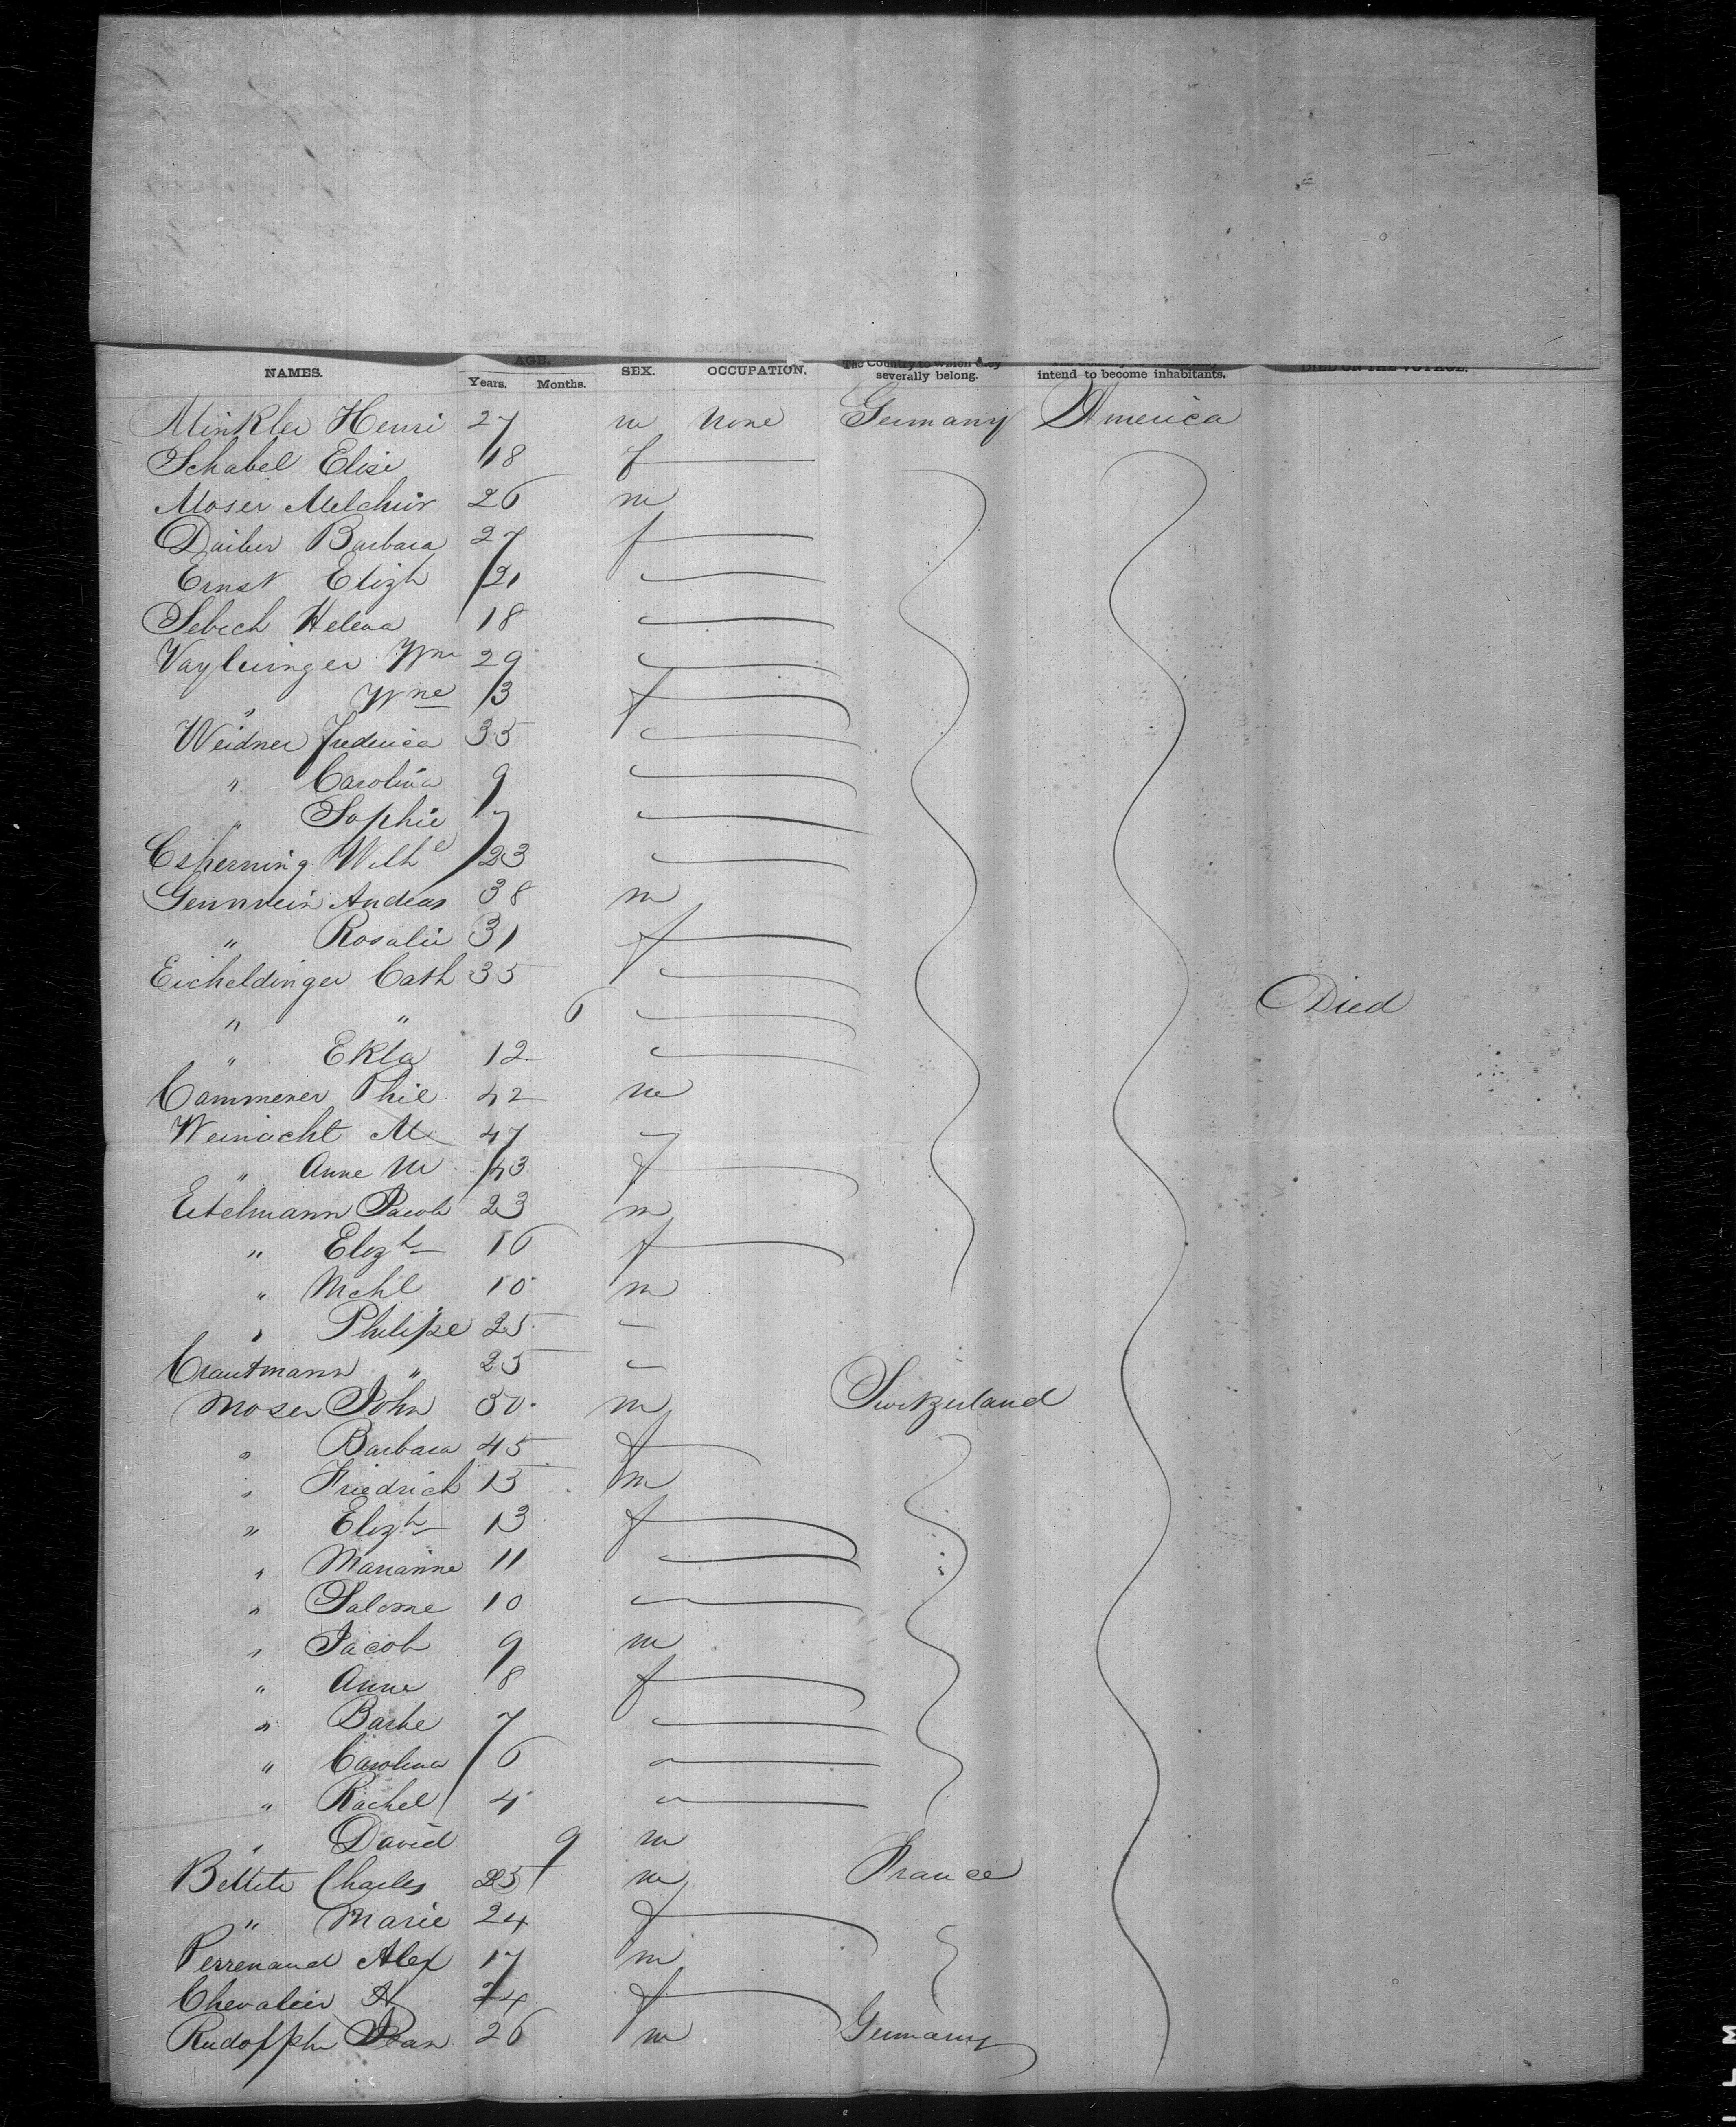 NAMES. AGE. SEX. OCCUPATION. The Country to which they severally belong. intend to become inhabitants. DIED ON THE VOYAGE.
Years. Months.
Minkler Henri 27 m None Germany America
Schabel Elise 18 f
Moser Melchior 26 m
Daiber Barbara 27 f
Ernst Elizh 21
Sebech Helena 18
Vayhinger Wm 29
" Wne 13 f
Weidner Frederica 35
" Carolina 9
" Sophie 7
Csherning Wilhe 23
Gennwein Andeas 38 m
" Rosalie 31 f
Eicheldinger Cath 35
" " 6 Died
" Ekla 12
Cammerer Phil 42 m
Weinacht M 47
" Anne M 43 f
Eitelmann Jacob 23 m
" Elizh 16 f
" Mchl 10 m
" Philipe 25
Crautmann " 25
Moser John 50 m Switzerland
" Barbara 45 f
" Friedrich 15 m
" Elizh 13 f
" Marianne 11
" Salome 10
" Jacob 9 m
" Anne 8 f
" Barbe 7
" Carolina 6
" Rachel 4
" David 9 m
Bettete Charles 25 m France
" Marie 24 f
Perrenaud Alex 17 m
Chevalier A 24 f
Rudolph Jean 26 m Germany